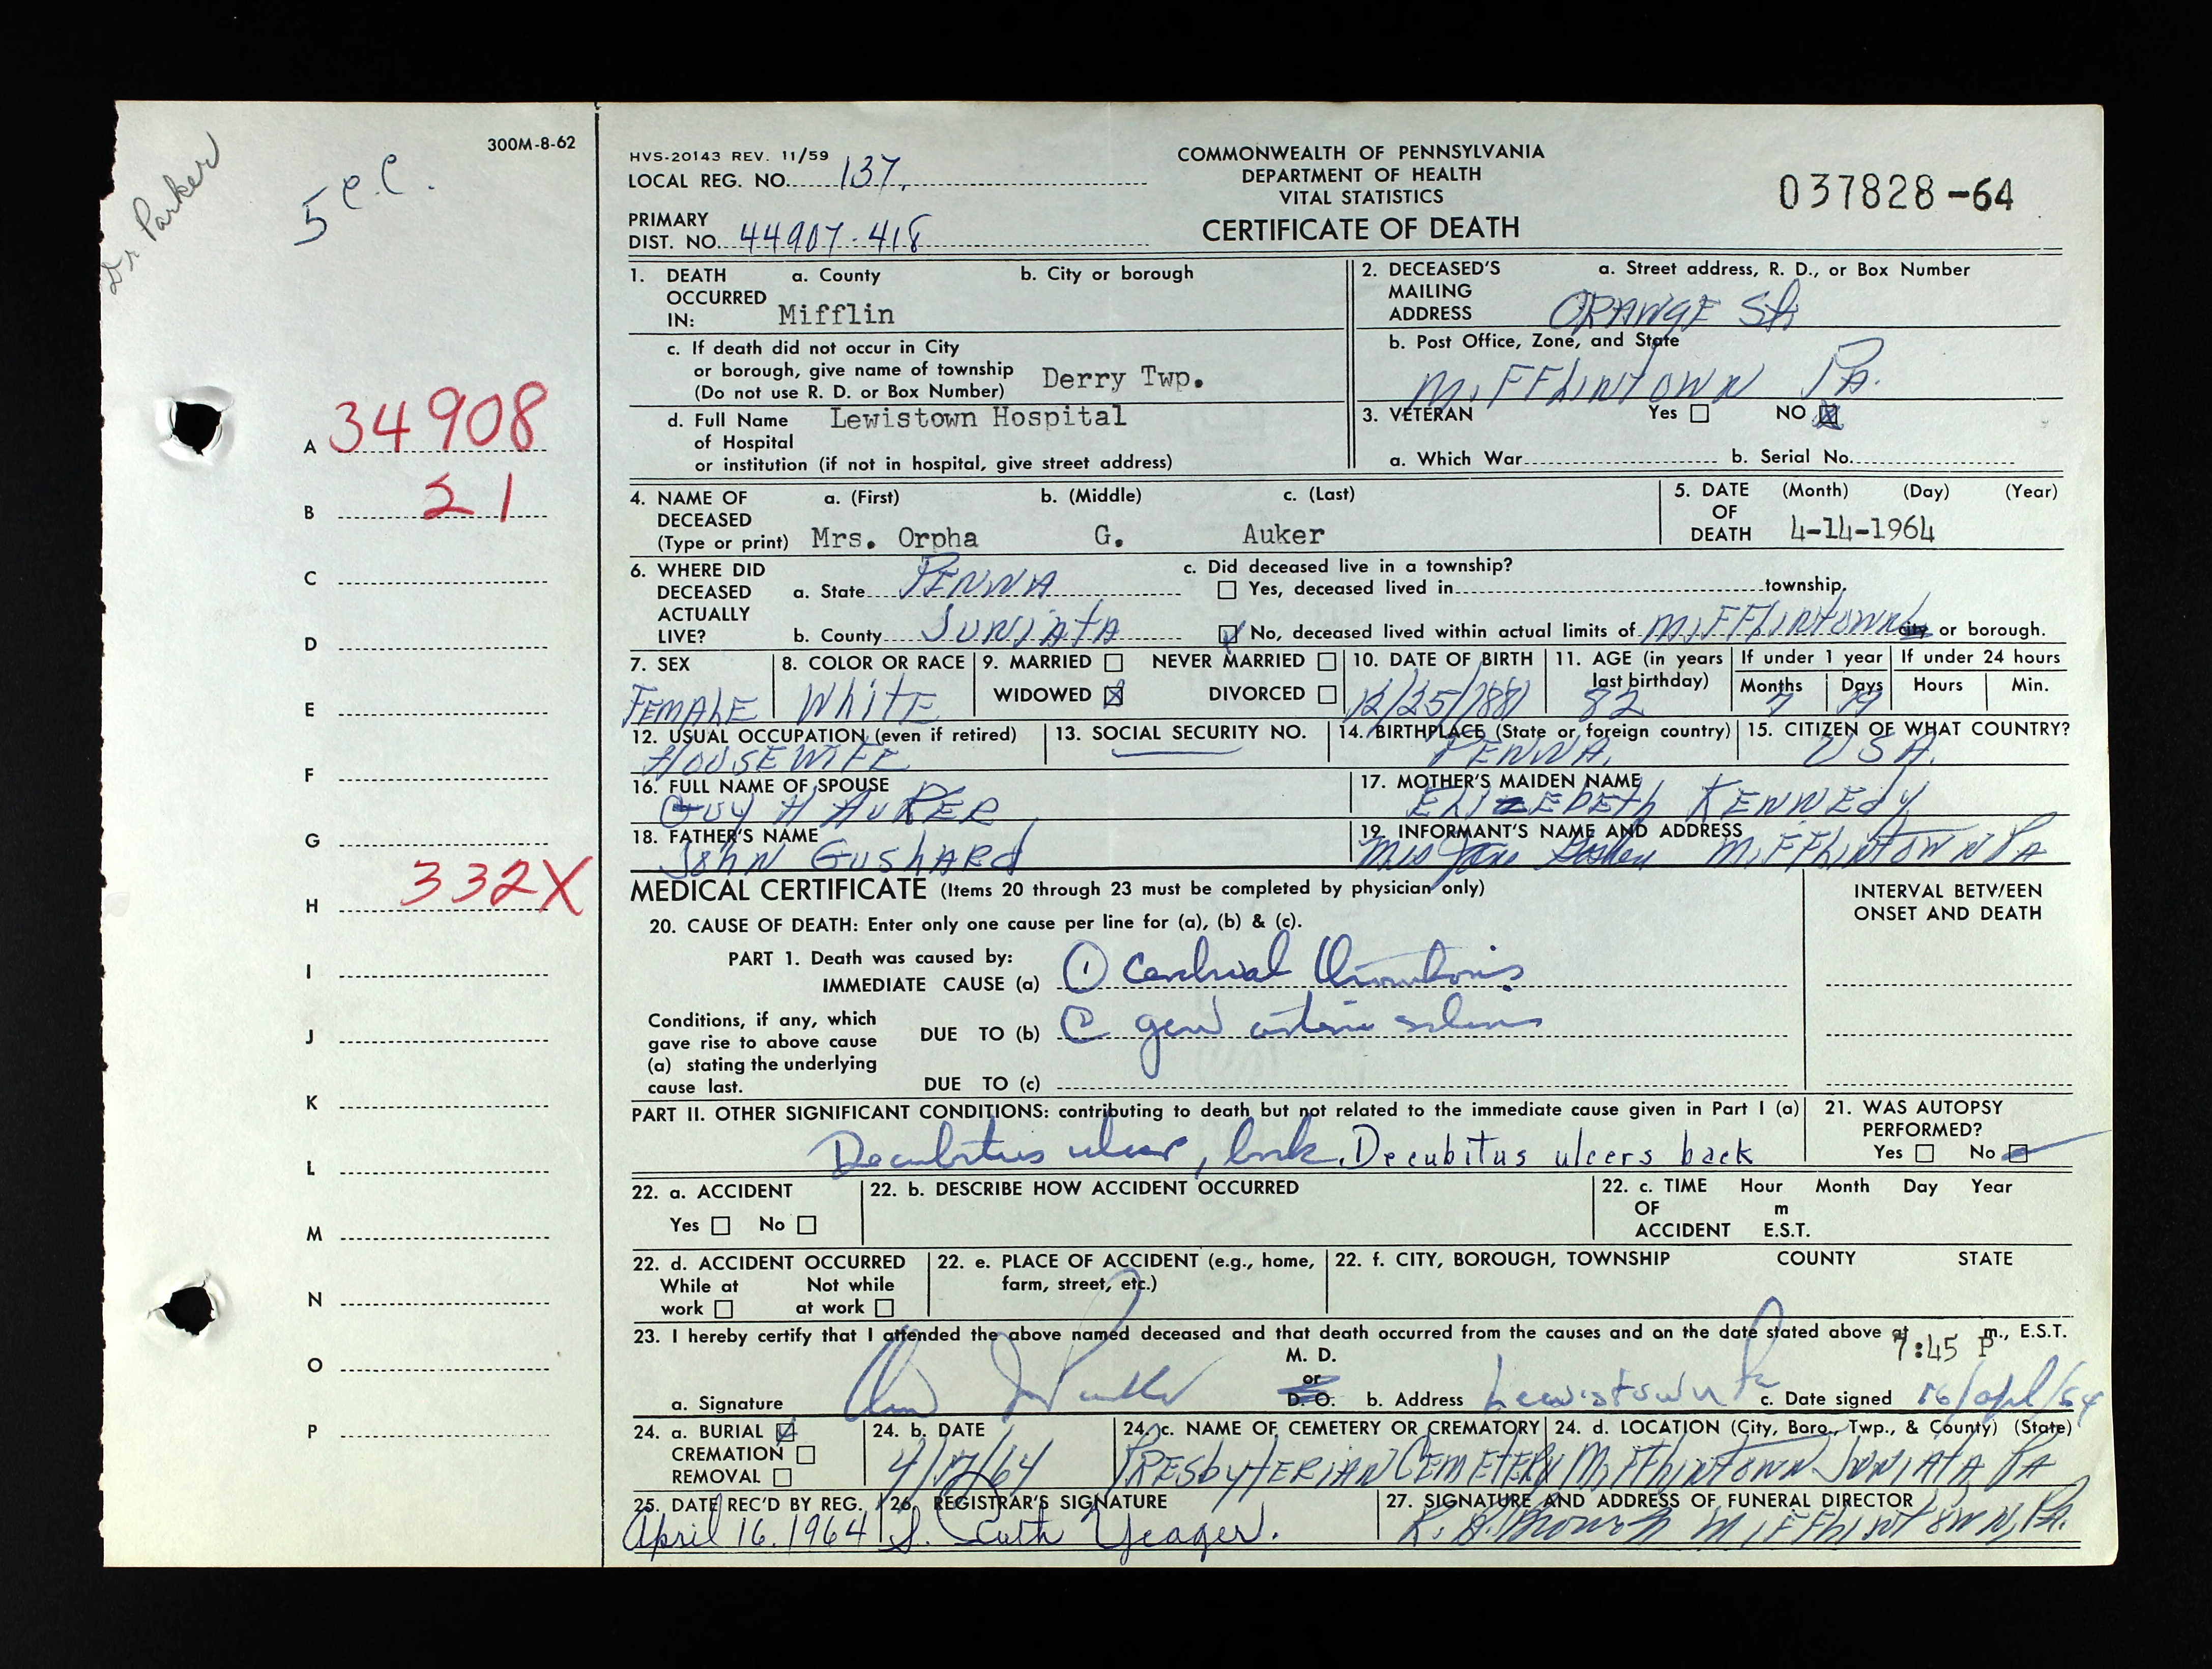 Dr Parker
5 c.c.
300M-8-62
A 34908
B 21
C
D
E
F
G
H 332X
I
J
K
L
M
N
O
P
HVS-20143 REV. 11/59
LOCAL REG. NO. 137.
PRIMARY
DIST. NO. 44907-418
COMMONWEALTH OF PENNSYLVANIA
DEPARTMENT OF HEALTH
VITAL STATISTICS
CERTIFICATE OF DEATH
037828-64
1. DEATH OCCURRED IN: a. County Mifflin b. City or borough
c. If death did not occur in City
or borough, give name of township Derry Twp.
(Do not use R. D. or Box Number)
d. Full Name Lewistown Hospital
of Hospital
or institution (if not in hospital, give street address)
2. DECEASED'S MAILING ADDRESS a. Street address, R. D., or Box Number
ORANGE St.
b. Post Office, Zone, and State
MIFFLINTOWN PA.
3. VETERAN Yes NO
a. Which War b. Serial No.
4. NAME OF DECEASED (Type or print) a. (First) b. (Middle) c. (Last)
Mrs. Orpha G. Auker
5. DATE OF DEATH (Month) (Day) (Year)
4-14-1964
6. WHERE DID DECEASED ACTUALLY LIVE?
a. State PENNA
b. County JUNIATA
c. Did deceased live in a township?
Yes, deceased lived in township.
No, deceased lived within actual limits of MIFFLINTOWN city or borough.
7. SEX FEMALE
8. COLOR OR RACE WHITE
9. MARRIED NEVER MARRIED
WIDOWED DIVORCED
10. DATE OF BIRTH 12/25/1881
11. AGE (in years last birthday) 82
If under 1 year Months Days
If under 24 hours Hours Min.
12. USUAL OCCUPATION (even if retired)
HOUSEWIFE
13. SOCIAL SECURITY NO.
14. BIRTHPLACE (State or foreign country)
PENNA.
15. CITIZEN OF WHAT COUNTRY?
USA.
16. FULL NAME OF SPOUSE
GUY H AUKER
17. MOTHER'S MAIDEN NAME
ELIZEBETH KENNEDY
18. FATHER'S NAME
JOHN GUSHARD
19. INFORMANT'S NAME AND ADDRESS
Mrs MIFFLINTOWN PA
MEDICAL CERTIFICATE (Items 20 through 23 must be completed by physician only)
INTERVAL BETWEEN
ONSET AND DEATH
20. CAUSE OF DEATH: Enter only one cause per line for (a), (b) & (c).
PART 1. Death was caused by:
IMMEDIATE CAUSE (a) 1 Cerebral Thrombosis
Conditions, if any, which
gave rise to above cause
(a) stating the underlying
cause last.
DUE TO (b) gen
DUE TO (c)
PART II. OTHER SIGNIFICANT CONDITIONS: contributing to death but not related to the immediate cause given in Part I (a)
Decubitus ulcer, back. Decubitus ulcers back
21. WAS AUTOPSY
PERFORMED?
Yes No
22. a. ACCIDENT
Yes No
22. b. DESCRIBE HOW ACCIDENT OCCURRED
22. c. TIME OF ACCIDENT Hour Month Day Year
m
E.S.T.
22. d. ACCIDENT OCCURRED
While at work Not while at work
22. e. PLACE OF ACCIDENT (e.g., home,
farm, street, etc.)
22. f. CITY, BOROUGH, TOWNSHIP COUNTY STATE
23. I hereby certify that I attended the above named deceased and that death occurred from the causes and on the date stated above at 7:45 P m., E.S.T.
a. Signature M. D. or D. O. b. Address Lewistown Pa c. Date signed 16/april/64
24. a. BURIAL
CREMATION
REMOVAL
24. b. DATE
4/17/64
24. c. NAME OF CEMETERY OR CREMATORY
PRESBYTERIAN CEMETERY
24. d. LOCATION (City, Boro., Twp., & County) (State)
MIFFLINTOWN JUNIATA PA
25. DATE REC'D BY REG.
April 16. 1964
26. REGISTRAR'S SIGNATURE
Yeager.
27. SIGNATURE AND ADDRESS OF FUNERAL DIRECTOR
MIFFLINTOWN, PA.